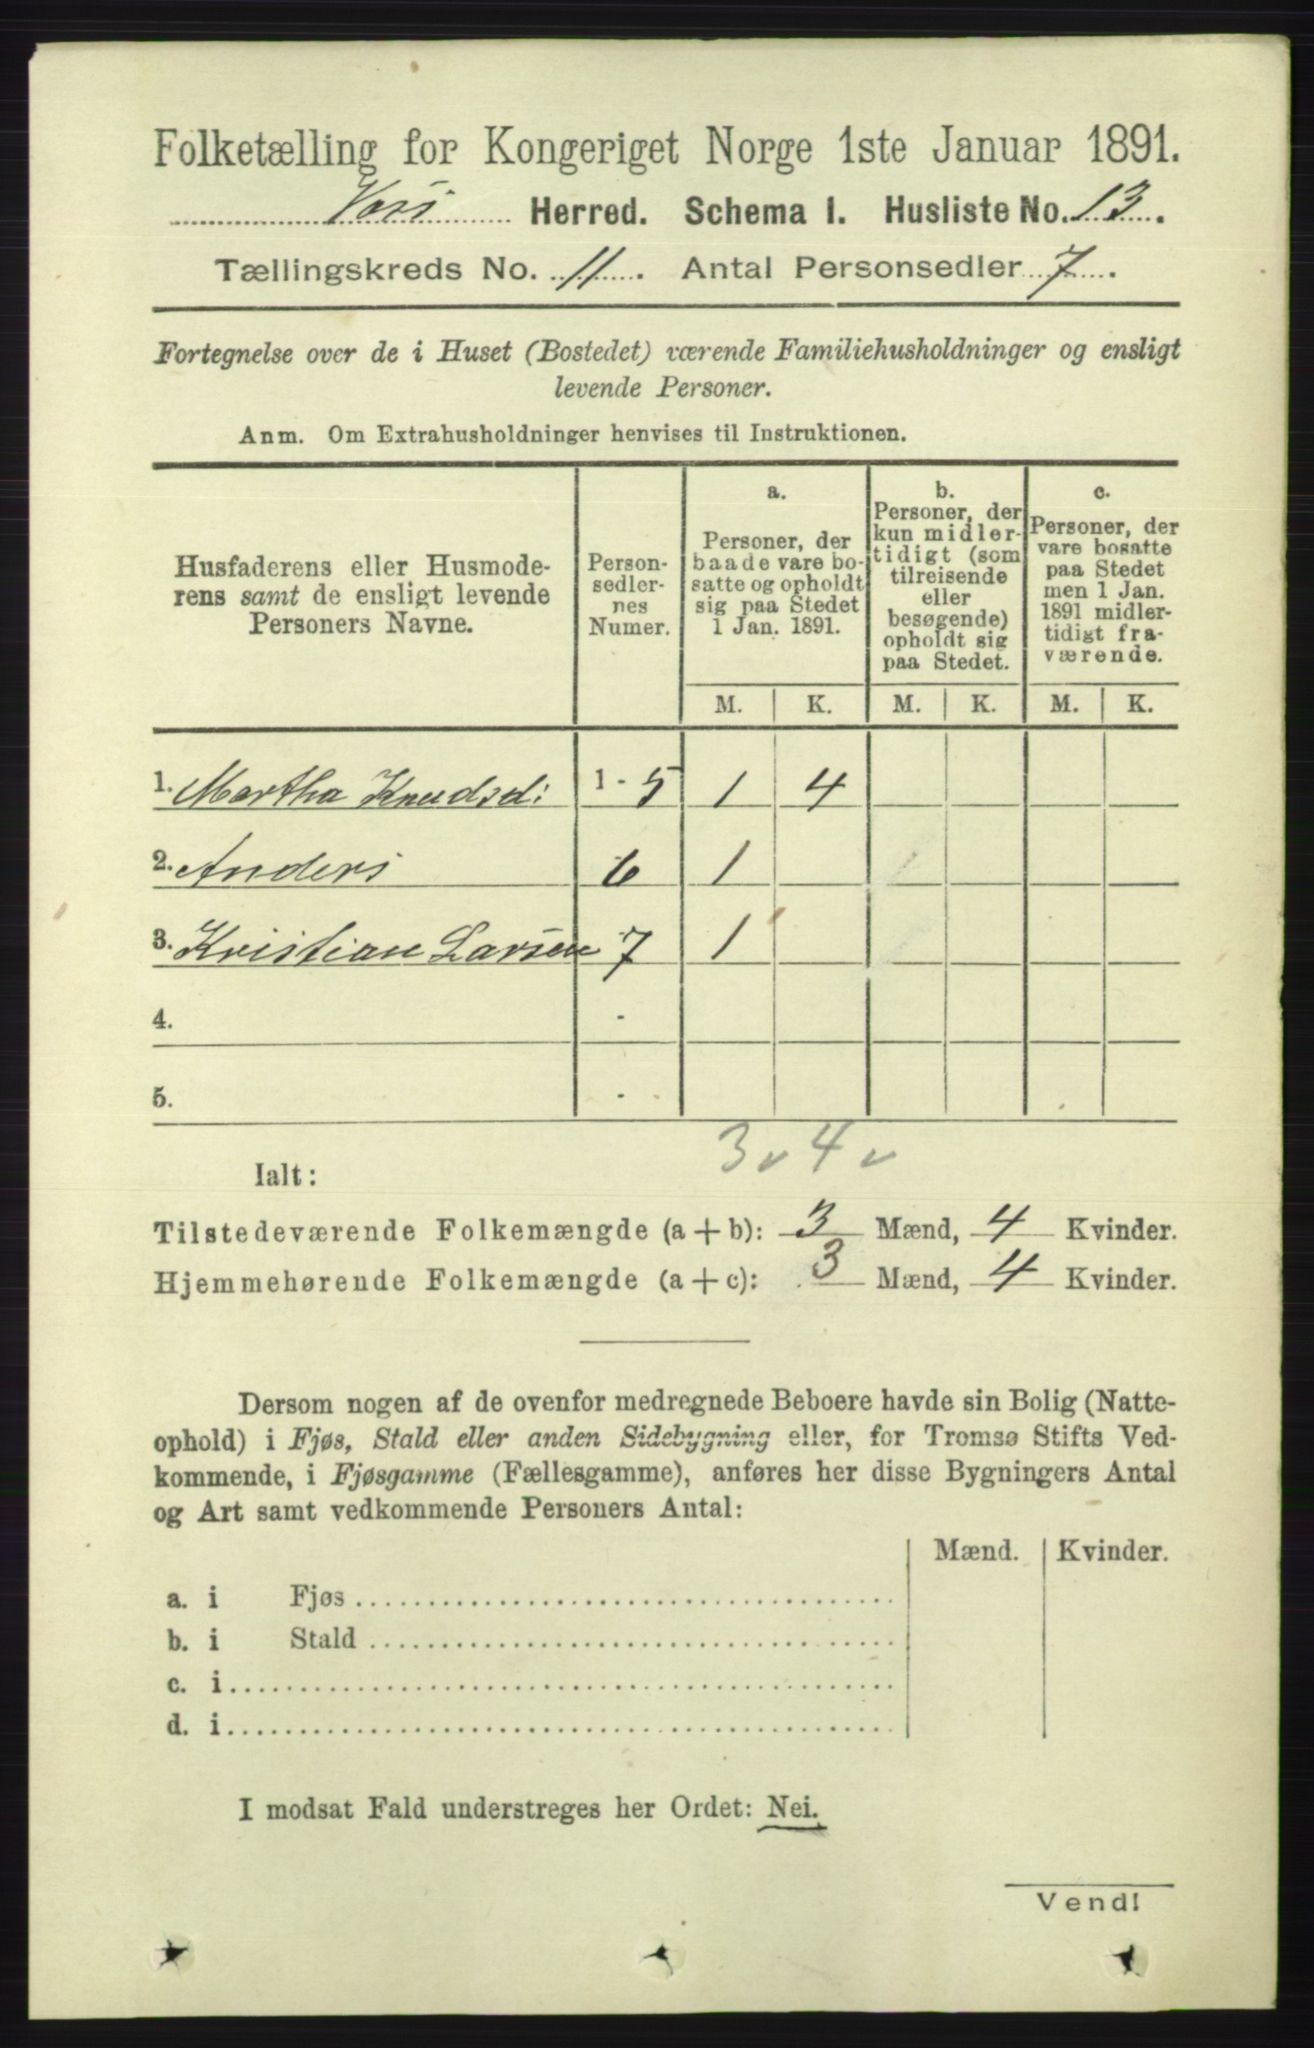 Folketælling for Kongeriget Norge 1ste Januar 1891.
Voss Herred. Schema I. Husliste No. 13.
Tællingskreds No. 11. Antal Personsedler 7.
Fortegnelse over de i Huset (Bostedet) værende Familiehusholdninger og ensligt
levende Personer.
Anm. Om Extrahusholdninger henvises til Instruktionen.
Husfaderens eller Husmode-
rens samt de ensligt levende
Personers Navne.
Person-
sedler-
nes
Numer.
a.
Personer, der
baade vare bo-
satte og opholdt
sig paa Stedet
1 Jan. 1891.
b.
Personer, der
kun midler-
tidigt (som
tilreisende
eller
besøgende)
opholdt sig
paa Stedet.
c.
Personer, der
vare bosatte
paa Stedet
men 1 Jan.
1891 midler-
tidigt fra-
værende.
M. K. M. K. M. K.
1. Martha Knudsd: 1 - 5 1 4
2. Anders 6 1
3. Kristian Larsen 7 1
4. -
5. -
3 v 4 v
Ialt:
Tilstedeværende Folkemængde (a + b): 3 Mænd, 4 Kvinder.
Hjemmehørende Folkemængde (a + c): 3 Mænd, 4 Kvinder.
Dersom nogen af de ovenfor medregnede Beboere havde sin Bolig (Natte-
ophold) i Fjøs, Stald eller anden Sidebygning eller, for Tromsø Stifts Ved-
kommende, i Fjøsgamme (Fællesgamme), anføres her disse Bygningers Antal
og Art samt vedkommende Personers Antal:
Mænd. Kvinder.
a. i Fjøs
b. i Stald
c. i
d. i
I modsat Fald understreges her Ordet: Nei.
Vend!